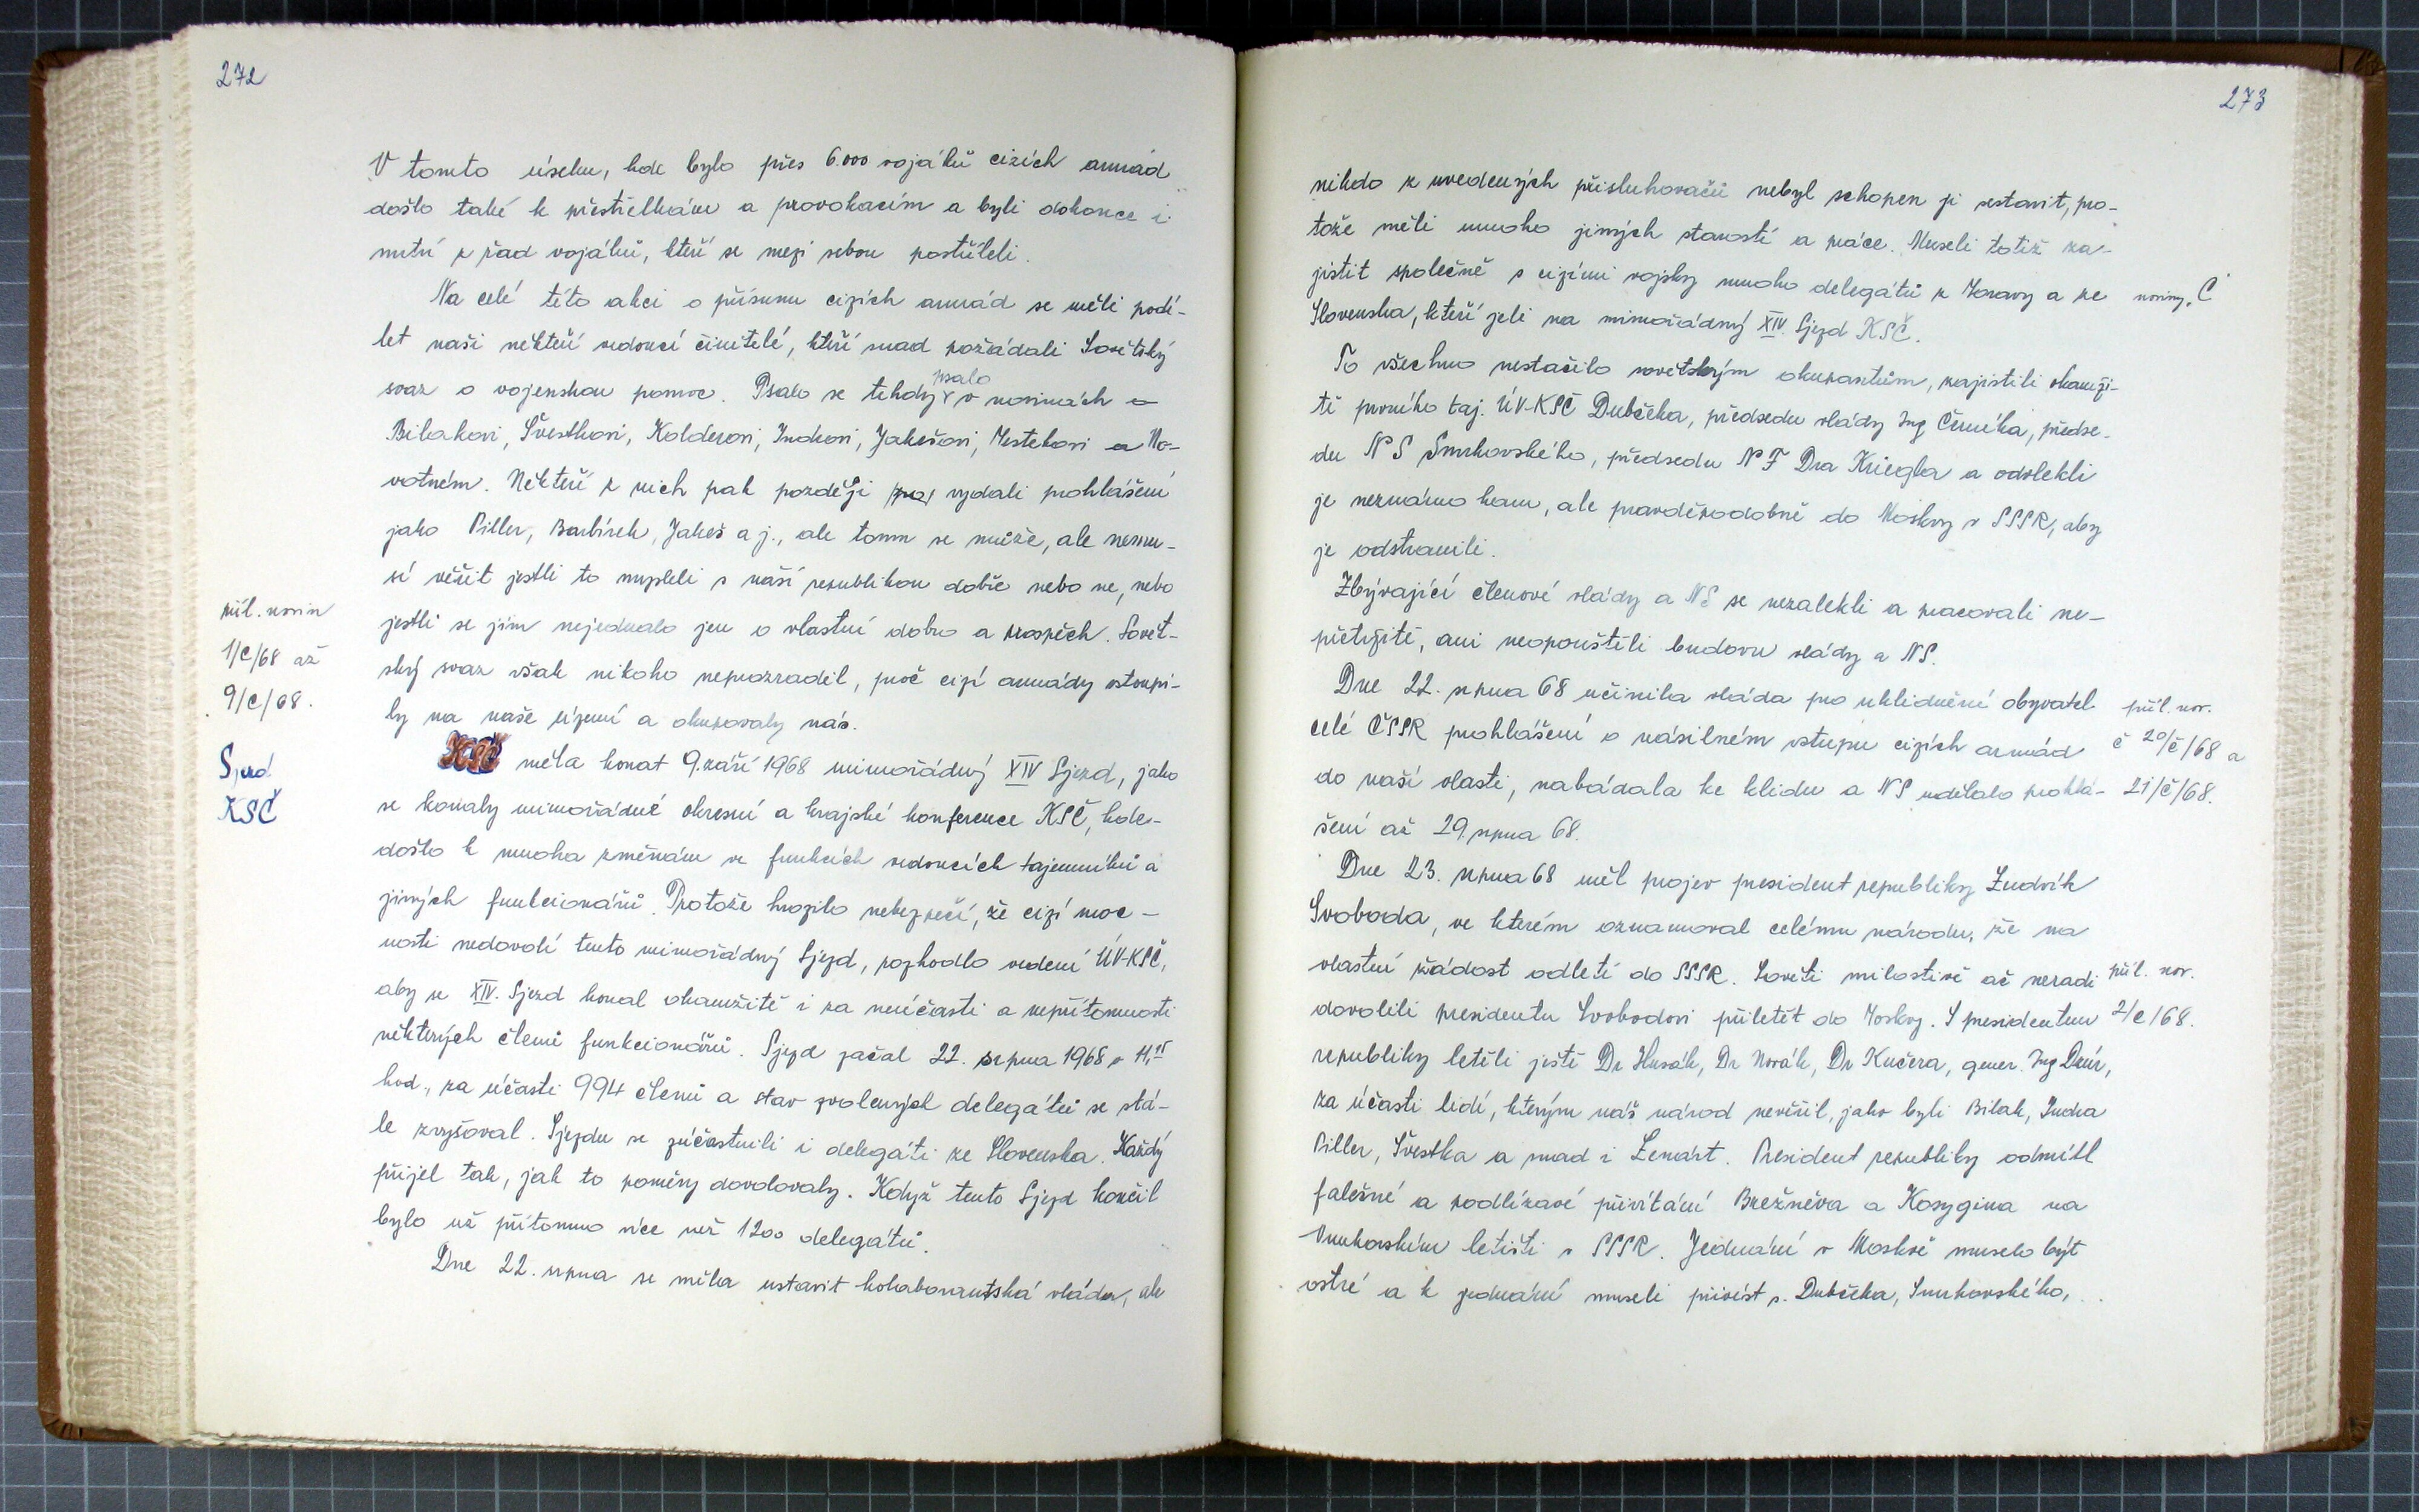 272
V tomto úseku, kde bylo přes 6.000 vojáků cizích armád
došlo také k přestřelkám a provokacím a byli dokonce i
mrtví z řad vojáků, kteří se mezi sebou postříleli.
Na celé této akci o přísunu cizích armád se měli podí-
let naši někteří vedoucí činitelé, kteří snad požádali Sovětský
svaz o vojenskou pomoc. Psalo se tehdy v novinách o
psalo
Bilakovi, Švestkovi, Kolderovi, Indrovi, Jakešovi, Mestekovi a No-
votném. Někteří z nich pak později vydali prohlášení
jako Piller, Barbírek, Jakeš a j., ale tomu se může, ale nemu-
sí věřit jestli to mysleli s naší republikou dobře nebo ne, nebo
jestli se jim nejednalo jen o vlastní dobro a prospěch. Sovět-
ský svaz však nikoho neprozradil, proč cizí armády vstoupi-
ly na naše území a okupovaly nás.
příl. novin
1/C/68 až
9/C/68.
Sjezd
KSČ
KSČ měla konat 9. září 1968 mimořádný XIV Sjezd, jako
se konaly mimořádné okresní a krajské konference KSČ, kde-
došlo k mnoha změnám ve funkcích vedoucích tajemníků a
jiných funkcionářů. Protože hrozilo nebezpečí, že cizí moc-
nosti nedovolí tento mimořádný Sjezd, rozhodlo vedení ÚV-KSČ,
aby se XIV. Sjezd konal okamžitě i za neúčasti a nepřítomnosti
některých členů funkcionářů. Sjezd začal 22. srpna 1968 v 11,15
hod., za účasti 994 členů a stav zvolených delegátů se stá-
le zvyšoval. Sjezdu se zúčastnili i delegáti ze Slovenska. Každý
přijel tak, jak to poměry dovolovaly. Když tento Sjezd končil
bylo už přítomno více než 1200 delegátů.
Dne 22. srpna se měla ustavit kolaborantská vláda, ale
273
nikdo z uvedených přisluhovačů nebyl schopen ji sestavit, pro-
tože měli mnoho jiných starostí a práce. Museli totiž za-
jistit společně s cizími vojsky mnoho delegátů z Moravy a ze
noviny, Č
Slovenska, kteří jeli na mimořádný XIV. Sjezd KSČ.
To všechno nestačilo sovětským okupantům, zajistili okamži-
tě prvního taj. ÚV-KSČ Dubčeka, předsedu vlády Ing Černíka, předse-
du NS Smrkovského, předsedu NF Dra Kriegla a odvlekli
je neznámo kam, ale pravděpodobně do Moskvy v SSSR, aby
je odstranili.
Zbývající členové vlády a NS se nezalekli a pracovali ne-
přetržitě, ani neopouštěli budovu vlády a NS.
Dne 22. srpna 68 učinila vláda pro uklidnění obyvatel
celé ČSSR prohlášení o násilném vstupu cizích armád
do naší vlasti, nabádala ke klidu a NS udělalo prohlá-
šení až 29. srpna 68.
příl. nov.
č 20/č/68 a
21/č/68.
Dne 23. srpna 68 měl projev president republiky Ludvík
Svoboda, ve kterém oznamoval celému národu, že na
vlastní žádost odletí do SSSR. Sověti milostivě ač neradi
dovolili presidentu Svobodovi přiletět do Moskvy. S presidentem
příl. nov.
2/C/68.
republiky letěli ještě Dr Husák, Dr Novák, Dr Kučera, gener. Ing Dzúr,
za účasti lidí, kterým náš národ nevěřil, jako byli Bilak, Indra
Piller, Švestka a snad i Lenárt. President republiky odmítl
falešné a podlézavé přivítání Brežněva a Kosygina na
Vnukovském letišti v SSSR. Jednání v Moskvě muselo být
ostré a k jednání museli přivést s. Dubčeka, Smrkovského,